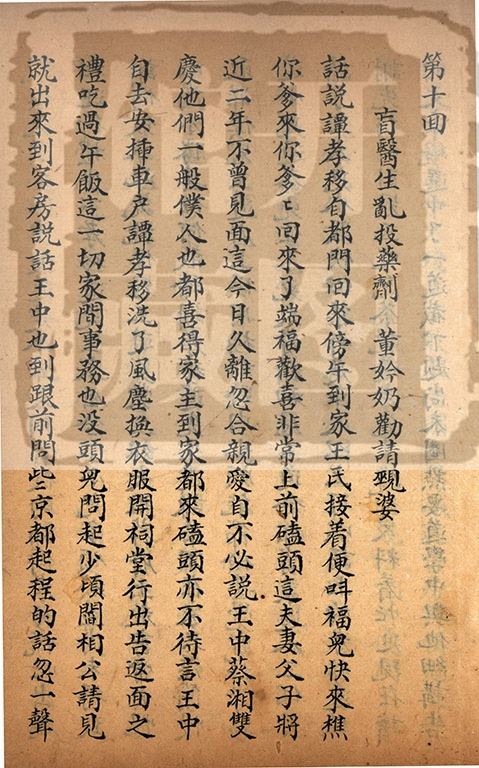 第十回
盲醫生亂投藥劑　董妗奶勸請覡婆
話說譚孝移自都門回來傍午到家王氏接着便呌福兒快來樵
你爹來你爹〻回來了端福歡喜非常上前磕頭這夫妻父子將
近二年不曾見面這今日久離忽合親愛自不必說王中蔡湘雙
慶他們一般僕人也都喜得家主到家都來磕頭亦不待言王中
自去安揷車户譚孝移洗了風塵換衣服開祠堂行出告返面之
禮吃過午飯這一切家間事務也没頭兒問起少頃閻相公請見
就出來到客房説話王中也到跟前問些京都起程的話忽一聲